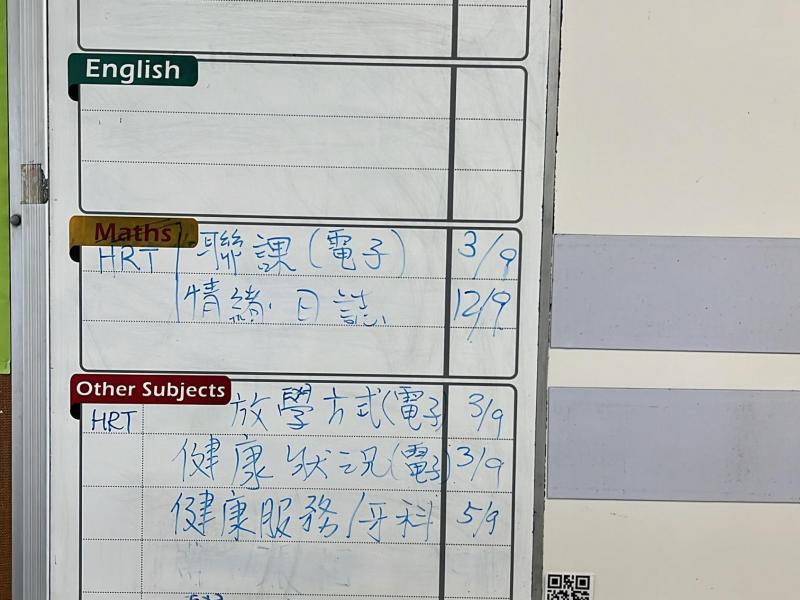 English
Maths
HRT 聯課(電子) 3/9
情緒日誌 12/9
Other Subjects
HRT 放學方式(電子 3/9
健康狀況(電子) 3/9
健康服務/牙科 5/9